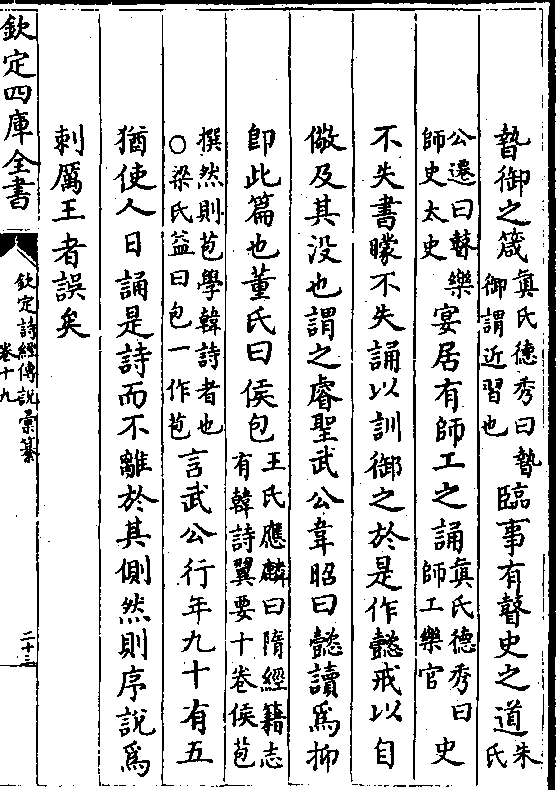 暬御之箴真氏德秀曰暬御謂近習也臨事有瞽史之道朱氏
公遷曰瞽樂師史太史宴居有師工之誦真氏德秀曰師工樂官史
不失書矇不失誦以訓御之於是作懿戒以自
儆及其没也謂之睿聖武公韋昭曰懿讀為抑
即此篇也董氏曰侯包王氏應麟曰隋經籍志有韓詩翼要十卷侯苞
撰然則苞學韓詩者也○梁氏益曰包一作苞言武公行年九十有五
猶使人日誦是詩而不離於其側然則序說為
刺厲王者誤矣
欽定四庫全書
欽定詩經傳說彙纂
卷十九
二十三